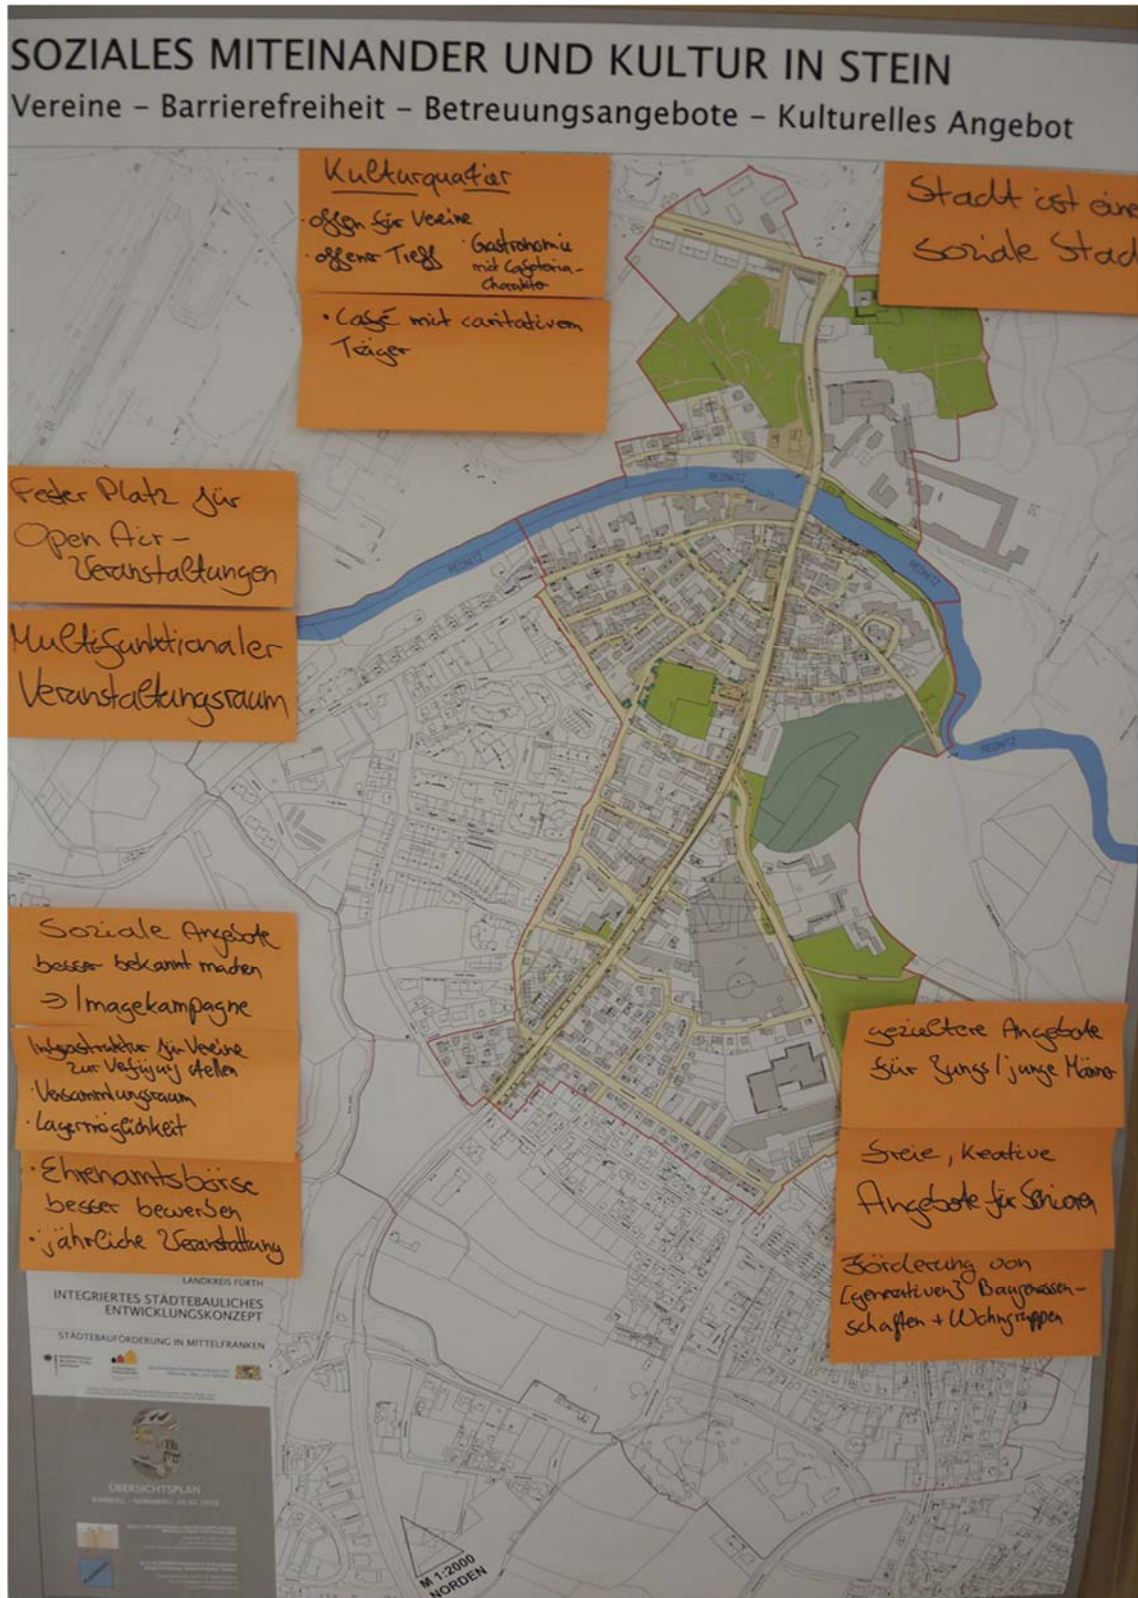 SOZIALES MITEINANDER UND KULTUR IN STEIN
Vereine – Barrierefreiheit – Betreuungsangebote – Kulturelles Angebot
Kulturquatier
· offen für Vereine
· offener Treff
· Gastronomie
mit Cafeteria-
Charakter
· Café mit caritativem
Träger
Stadt ist eine
soziale Stad
Fester Platz für
Open Air-
Veranstaltungen
Multifunktionaler
Veranstaltungsraum
Soziale Angebote
besser bekannt machen
⇒ Imagekampagne
Infrastruktur für Vereine
zur Verfügung stellen
· Versammlungsraum
· Lagermöglichkeit
· Ehrenamtsbörse
besser bewerben
· jährliche Veranstaltung
gezieltere Angebote
für Jungs / junge Männer
freie, kreative
Angebote für Senioren
Förderung von
[generativen] Baugenossen-
schaften + Wohngruppen
REDNITZ
REDNITZ
REDNITZ
REDNITZ
LANDKREIS FÜRTH
INTEGRIERTES STÄDTEBAULICHES
ENTWICKLUNGSKONZEPT
STÄDTEBAUFÖRDERUNG IN MITTELFRANKEN
ÜBERSICHTSPLAN
M 1:2000
NORDEN